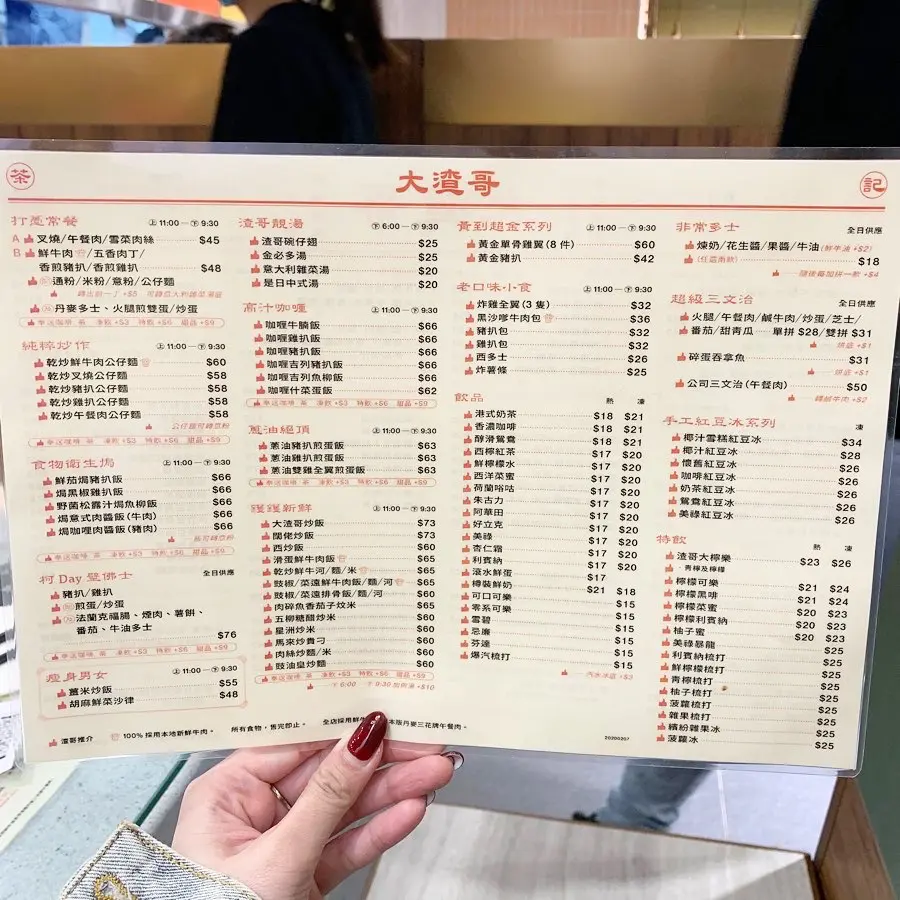 茶
大渣哥
記
打怒常餐 上11:00 — 下9:30
A 叉燒/午餐肉/雪菜肉絲 $45
B 鮮牛肉/五香肉丁/
香煎豬扒/香煎雞扒 $48
通粉/米粉/意粉/公仔麵
丹麥多士、火腿煎雙蛋/炒蛋
奉送咖啡 茶 凍飲+$3 特飲+$6 甜品+$9
純粹炒作 上11:00 — 下9:30
乾炒鮮牛肉公仔麵 $60
乾炒叉燒公仔麵 $58
乾炒豬扒公仔麵 $58
乾炒雞扒公仔麵 $58
乾炒午餐肉公仔麵 $58
公仔麵可轉意粉
奉送咖啡 茶 凍飲+$3 特飲+$6 甜品+$9
食物衛生焗 上11:00 — 下9:30
鮮茄焗豬扒飯 $66
焗黑椒雞扒飯 $66
野菌松露汁焗魚柳飯 $66
焗意式肉醬飯(牛肉) $66
焗咖喱肉醬飯(豬肉) $66
飯可轉意粉
奉送咖啡 茶 凍飲+$3 特飲+$6 甜品+$9
柯 Day 壁佛士 全日供應
豬扒/雞扒
煎蛋/炒蛋
法蘭克福腸、煙肉、薯餅、
番茄、牛油多士 $76
奉送咖啡 茶 凍飲+$3 特飲+$6 甜品+$9
瘦身男女 上11:00 — 下9:30
薑米炒飯 $55
胡麻鮮菜沙律 $48
渣哥靚湯 下6:00 — 下9:30
渣哥碗仔翅 $25
金必多湯 $25
意大利雜菜湯 $20
是日中式湯 $20
高汁咖喱 上11:00 — 下9:30
咖喱牛腩飯 $66
咖喱雞扒飯 $66
咖喱豬扒飯 $66
咖喱吉列豬扒飯 $66
咖喱吉列魚柳飯 $66
咖喱什菜蛋飯 $62
奉送咖啡 茶 凍飲+$3 特飲+$6 甜品+$9
蔥油絕頂 上11:00 — 下9:30
蔥油豬扒煎蛋飯 $63
蔥油雞扒煎蛋飯 $63
蔥油雙雞全翼煎蛋飯 $63
奉送咖啡 茶 凍飲+$3 特飲+$6 甜品+$9
鑊鑊新鮮 上11:00 — 下9:30
大渣哥炒飯 $73
闊佬炒飯 $73
西炒飯 $60
滑蛋鮮牛肉飯 $65
乾炒鮮牛河/麵/米 $65
豉椒/菜遠鮮牛肉飯/麵/河 $65
豉椒/菜遠排骨飯/麵/河 $60
肉碎魚香茄子炆米 $65
五柳糖醋炒米 $60
星洲炒米 $60
馬來炒貴刁 $60
肉絲炒麵/米 $60
豉油皇炒麵 $60
奉送咖啡 茶 凍飲+$3 特飲+$6 甜品+$9
下6:00 — 下9:30 加例湯+$10
黃到超金系列 上11:00 — 下9:30
黃金單骨雞翼(8 件) $60
黃金豬扒 $42
老口味小食 上11:00 — 下9:30
炸雞全翼(3 隻) $32
黑沙嗲牛肉包 $36
豬扒包 $32
雞扒包 $32
西多士 $26
炸薯條 $25
飲品 熱 凍
港式奶茶 $18 $21
香濃咖啡 $18 $21
醇滑鴛鴦 $18 $21
西檸紅茶 $17 $20
鮮檸檬水 $17 $20
西洋菜蜜 $17 $20
荷蘭唂咕 $17 $20
朱古力 $17 $20
阿華田 $17 $20
好立克 $17 $20
美祿 $17 $20
杏仁霜 $17 $20
利賓納 $17 $20
滾水鮮蛋 $17
樽裝鮮奶 $21 $18
可口可樂 $15
零系可樂 $15
雪碧 $15
忌廉 $15
芬達 $15
爆汽梳打 $15
汽水冰底 +$3
非常多士 全日供應
煉奶/花生醬/果醬/牛油(鮮牛油 +$2)
(任選兩款) $18
隨後每加拼一款 +$4
超級三文治 全日供應
火腿/午餐肉/鹹牛肉/炒蛋/芝士/
番茄/甜青瓜 單拼 $28/雙拼 $31
烘底 +$1
碎蛋吞拿魚 $31
烘底 +$1
公司三文治(午餐肉) $50
轉鹹牛肉 +$2
手工紅豆冰系列 凍
椰汁雪糕紅豆冰 $34
椰汁紅豆冰 $28
懷舊紅豆冰 $26
咖啡紅豆冰 $26
奶茶紅豆冰 $26
鴛鴦紅豆冰 $26
美祿紅豆冰 $26
特飲 熱 凍
渣哥大檸樂 $23 $26
· 青檸及檸檬
檸檬可樂 $21 $24
檸檬黑啡 $21 $24
檸檬菜蜜 $20 $23
檸檬利賓納 $20 $23
柚子蜜 $20 $23
美祿暴龍 $25
利賓納梳打 $25
鮮檸檬梳打 $25
青檸梳打 $25
柚子梳打 $25
菠蘿梳打 $25
雜果梳打 $25
繽紛雜果冰 $25
菠蘿冰 $25
渣哥推介 100% 採用本地新鮮牛肉。 所有食物，售完即止。 全店採用鮮牛 本版丹麥三花牌午餐肉。 20200207